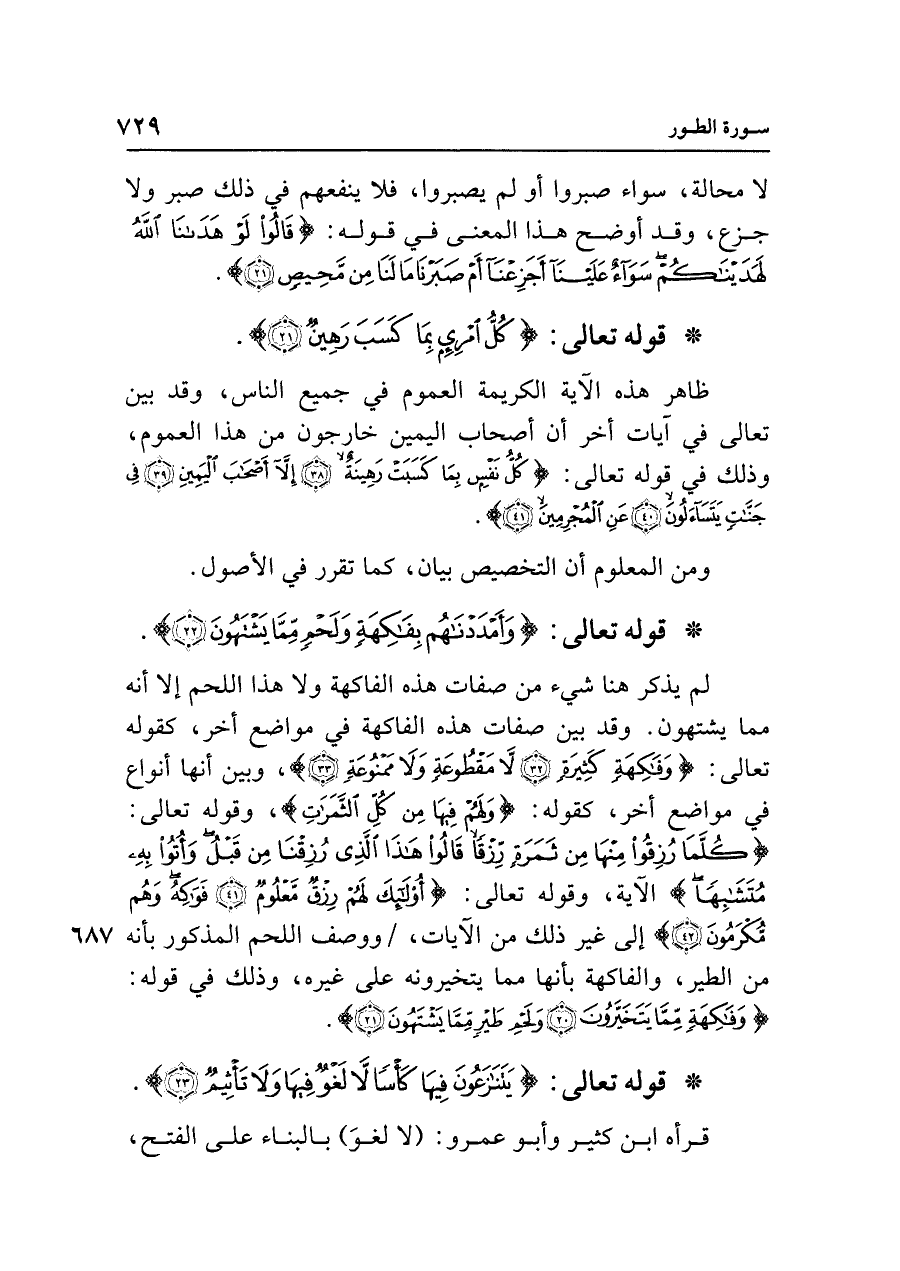 سورة الطور ٧٢٩
لا محالة، سواء صبروا أو لم يصبروا، فلا ينفعهم في ذلك صبر ولا
جزع، وقد أوضح هذا المعنى في قوله: ﴿قَالُوا۟ لَوْ هَدَىٰنَا ٱللَّهُ
لَهَدَيْنَٰكُمْ ۖ سَوَآءٌ عَلَيْنَآ أَجَزِعْنَآ أَمْ صَبَرْنَا مَا لَنَا مِن مَّحِيصٍ ٢١﴾.
* قوله تعالى: ﴿كُلُّ ٱمْرِئٍۭ بِمَا كَسَبَ رَهِينٌ ٢١﴾.
ظاهر هذه الآية الكريمة العموم في جميع الناس، وقد بين
تعالى في آيات أخر أن أصحاب اليمين خارجون من هذا العموم،
وذلك في قوله تعالى: ﴿كُلُّ نَفْسٍۭ بِمَا كَسَبَتْ رَهِينَةٌ ٣٨ إِلَّآ أَصْحَٰبَ ٱلْيَمِينِ ٣٩ فِى
جَنَّٰتٍ يَتَسَآءَلُونَ ٤٠ عَنِ ٱلْمُجْرِمِينَ ٤١﴾.
ومن المعلوم أن التخصيص بيان، كما تقرر في الأصول.
* قوله تعالى: ﴿وَأَمْدَدْنَٰهُم بِفَٰكِهَةٍ وَلَحْمٍ مِّمَّا يَشْتَهُونَ ٢٢﴾.
لم يذكر هنا شيء من صفات هذه الفاكهة ولا هذا اللحم إلا أنه
مما يشتهون. وقد بين صفات هذه الفاكهة في مواضع أخر، كقوله
تعالى: ﴿وَفَٰكِهَةٍ كَثِيرَةٍ ٣٢ لَّا مَقْطُوعَةٍ وَلَا مَمْنُوعَةٍ ٣٣﴾، وبين أنها أنواع
في مواضع أخر، كقوله: ﴿وَلَهُمْ فِيهَا مِن كُلِّ ٱلثَّمَرَٰتِ﴾، وقوله تعالى:
﴿كُلَّمَا رُزِقُوا۟ مِنْهَا مِن ثَمَرَةٍ رِّزْقًا ۙ قَالُوا۟ هَٰذَا ٱلَّذِى رُزِقْنَا مِن قَبْلُ ۖ وَأُتُوا۟ بِهِۦ
مُتَشَٰبِهًا ۖ﴾ الآية، وقوله تعالى: ﴿أُو۟لَٰٓئِكَ لَهُمْ رِزْقٌ مَّعْلُومٌ ٤١ فَوَٰكِهُ ۖ وَهُم
مُّكْرَمُونَ ٤٢﴾ إلى غير ذلك من الآيات، / ووصف اللحم المذكور بأنه ٦٨٧
من الطير، والفاكهة بأنها مما يتخيرونه على غيره، وذلك في قوله:
﴿وَفَٰكِهَةٍ مِّمَّا يَتَخَيَّرُونَ ٢٠ وَلَحْمِ طَيْرٍ مِّمَّا يَشْتَهُونَ ٢١﴾.
* قوله تعالى: ﴿يَتَنَٰزَعُونَ فِيهَا كَأْسًا لَّا لَغْوٌ فِيهَا وَلَا تَأْثِيمٌ ٢٣﴾.
قرأه ابن كثير وأبو عمرو: (لا لغوَ) بالبناء على الفتح،